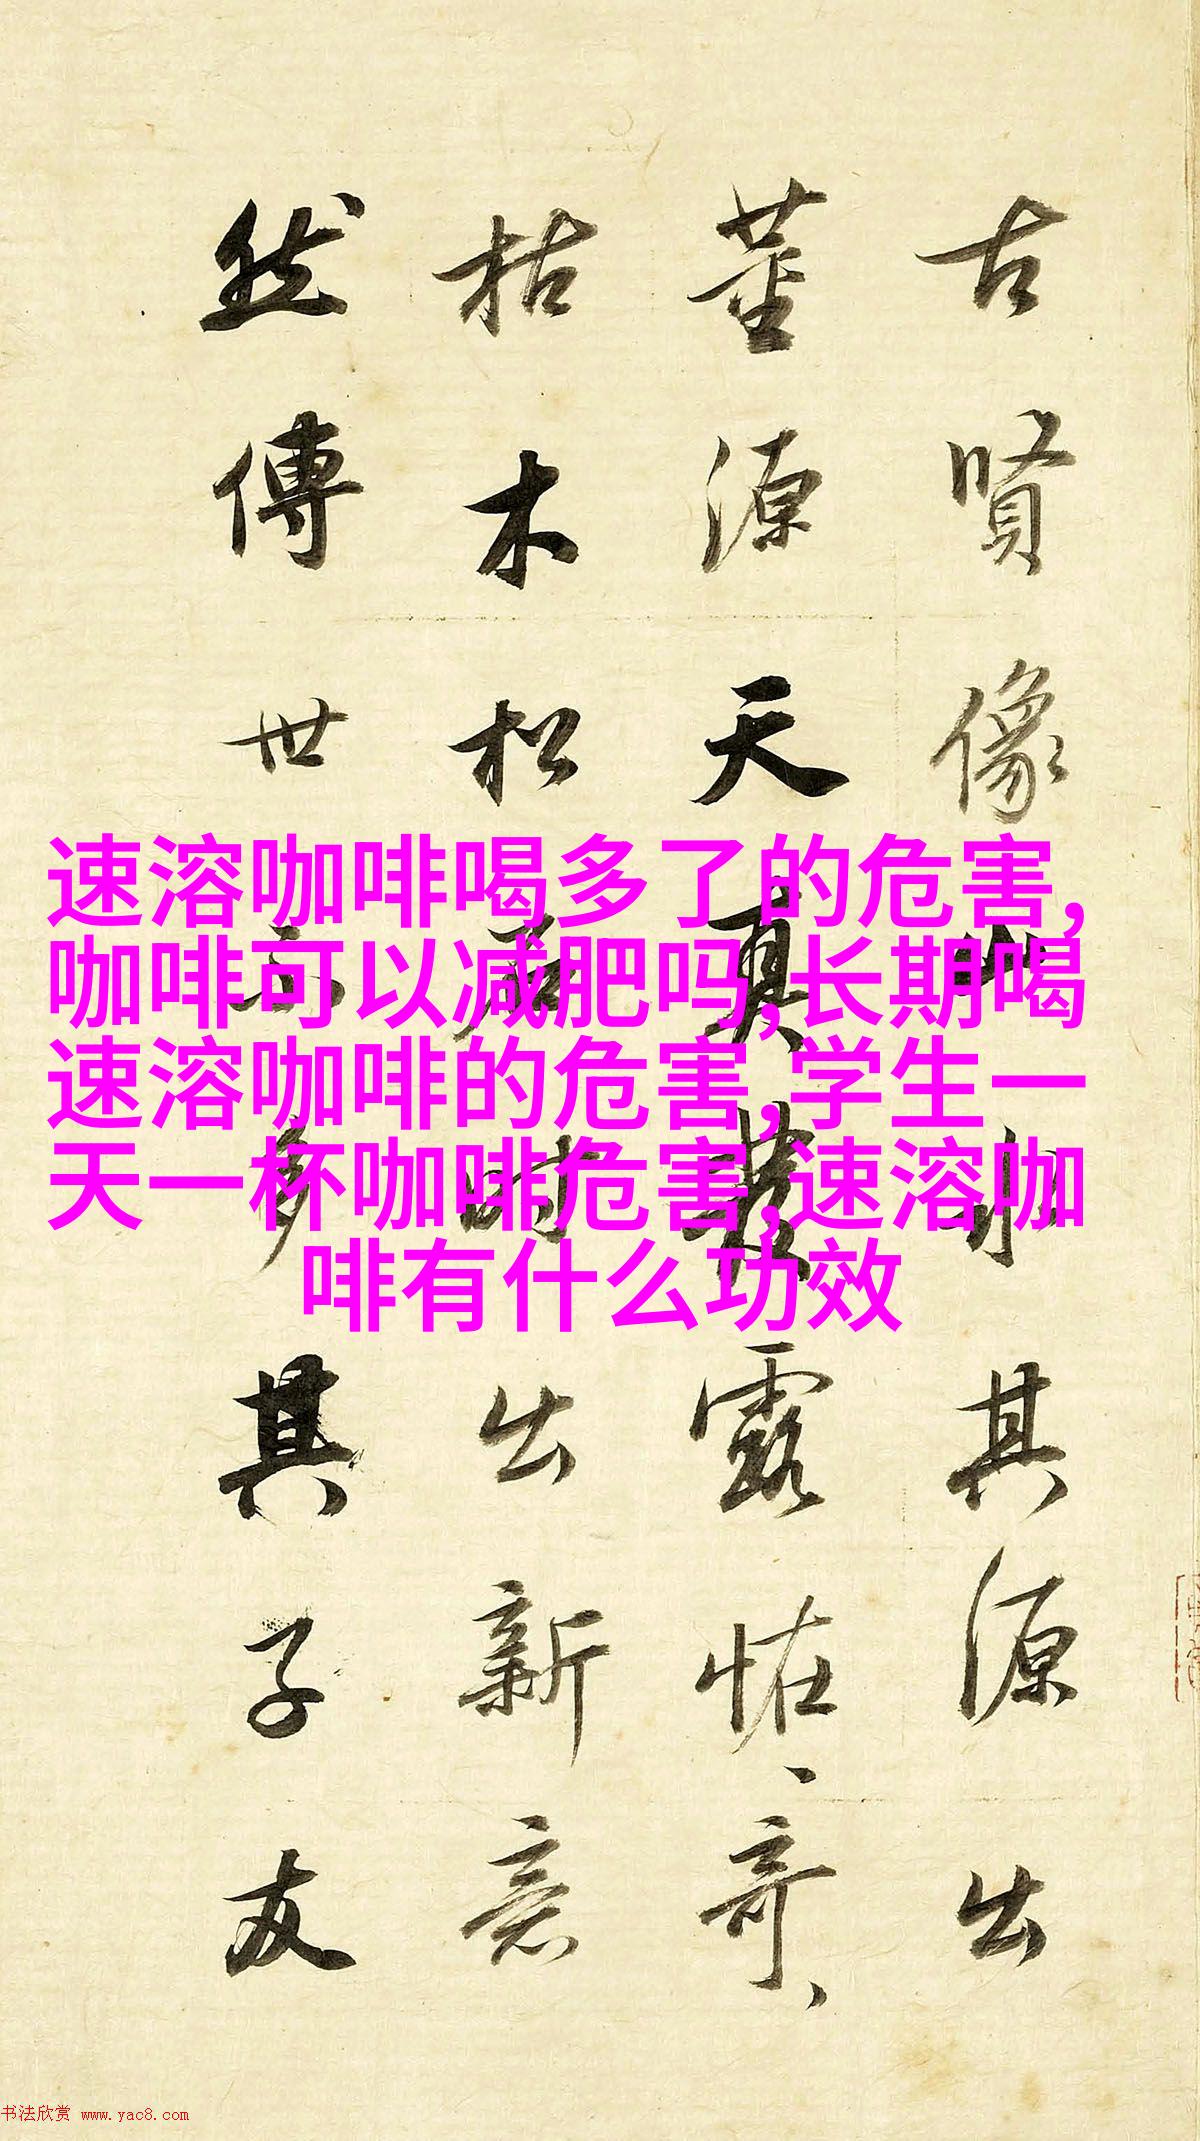 速溶咖啡喝多了的危害,
咖啡可以减肥吗,长期喝
速溶咖啡的危害,学生一
天一杯咖啡危害,速溶咖
啡有什么功效
古賢像山水其源出
董源天真發露恠奇
枯木松石時出新意
然傳世不多其子友
书法欣赏 www.yac8.com